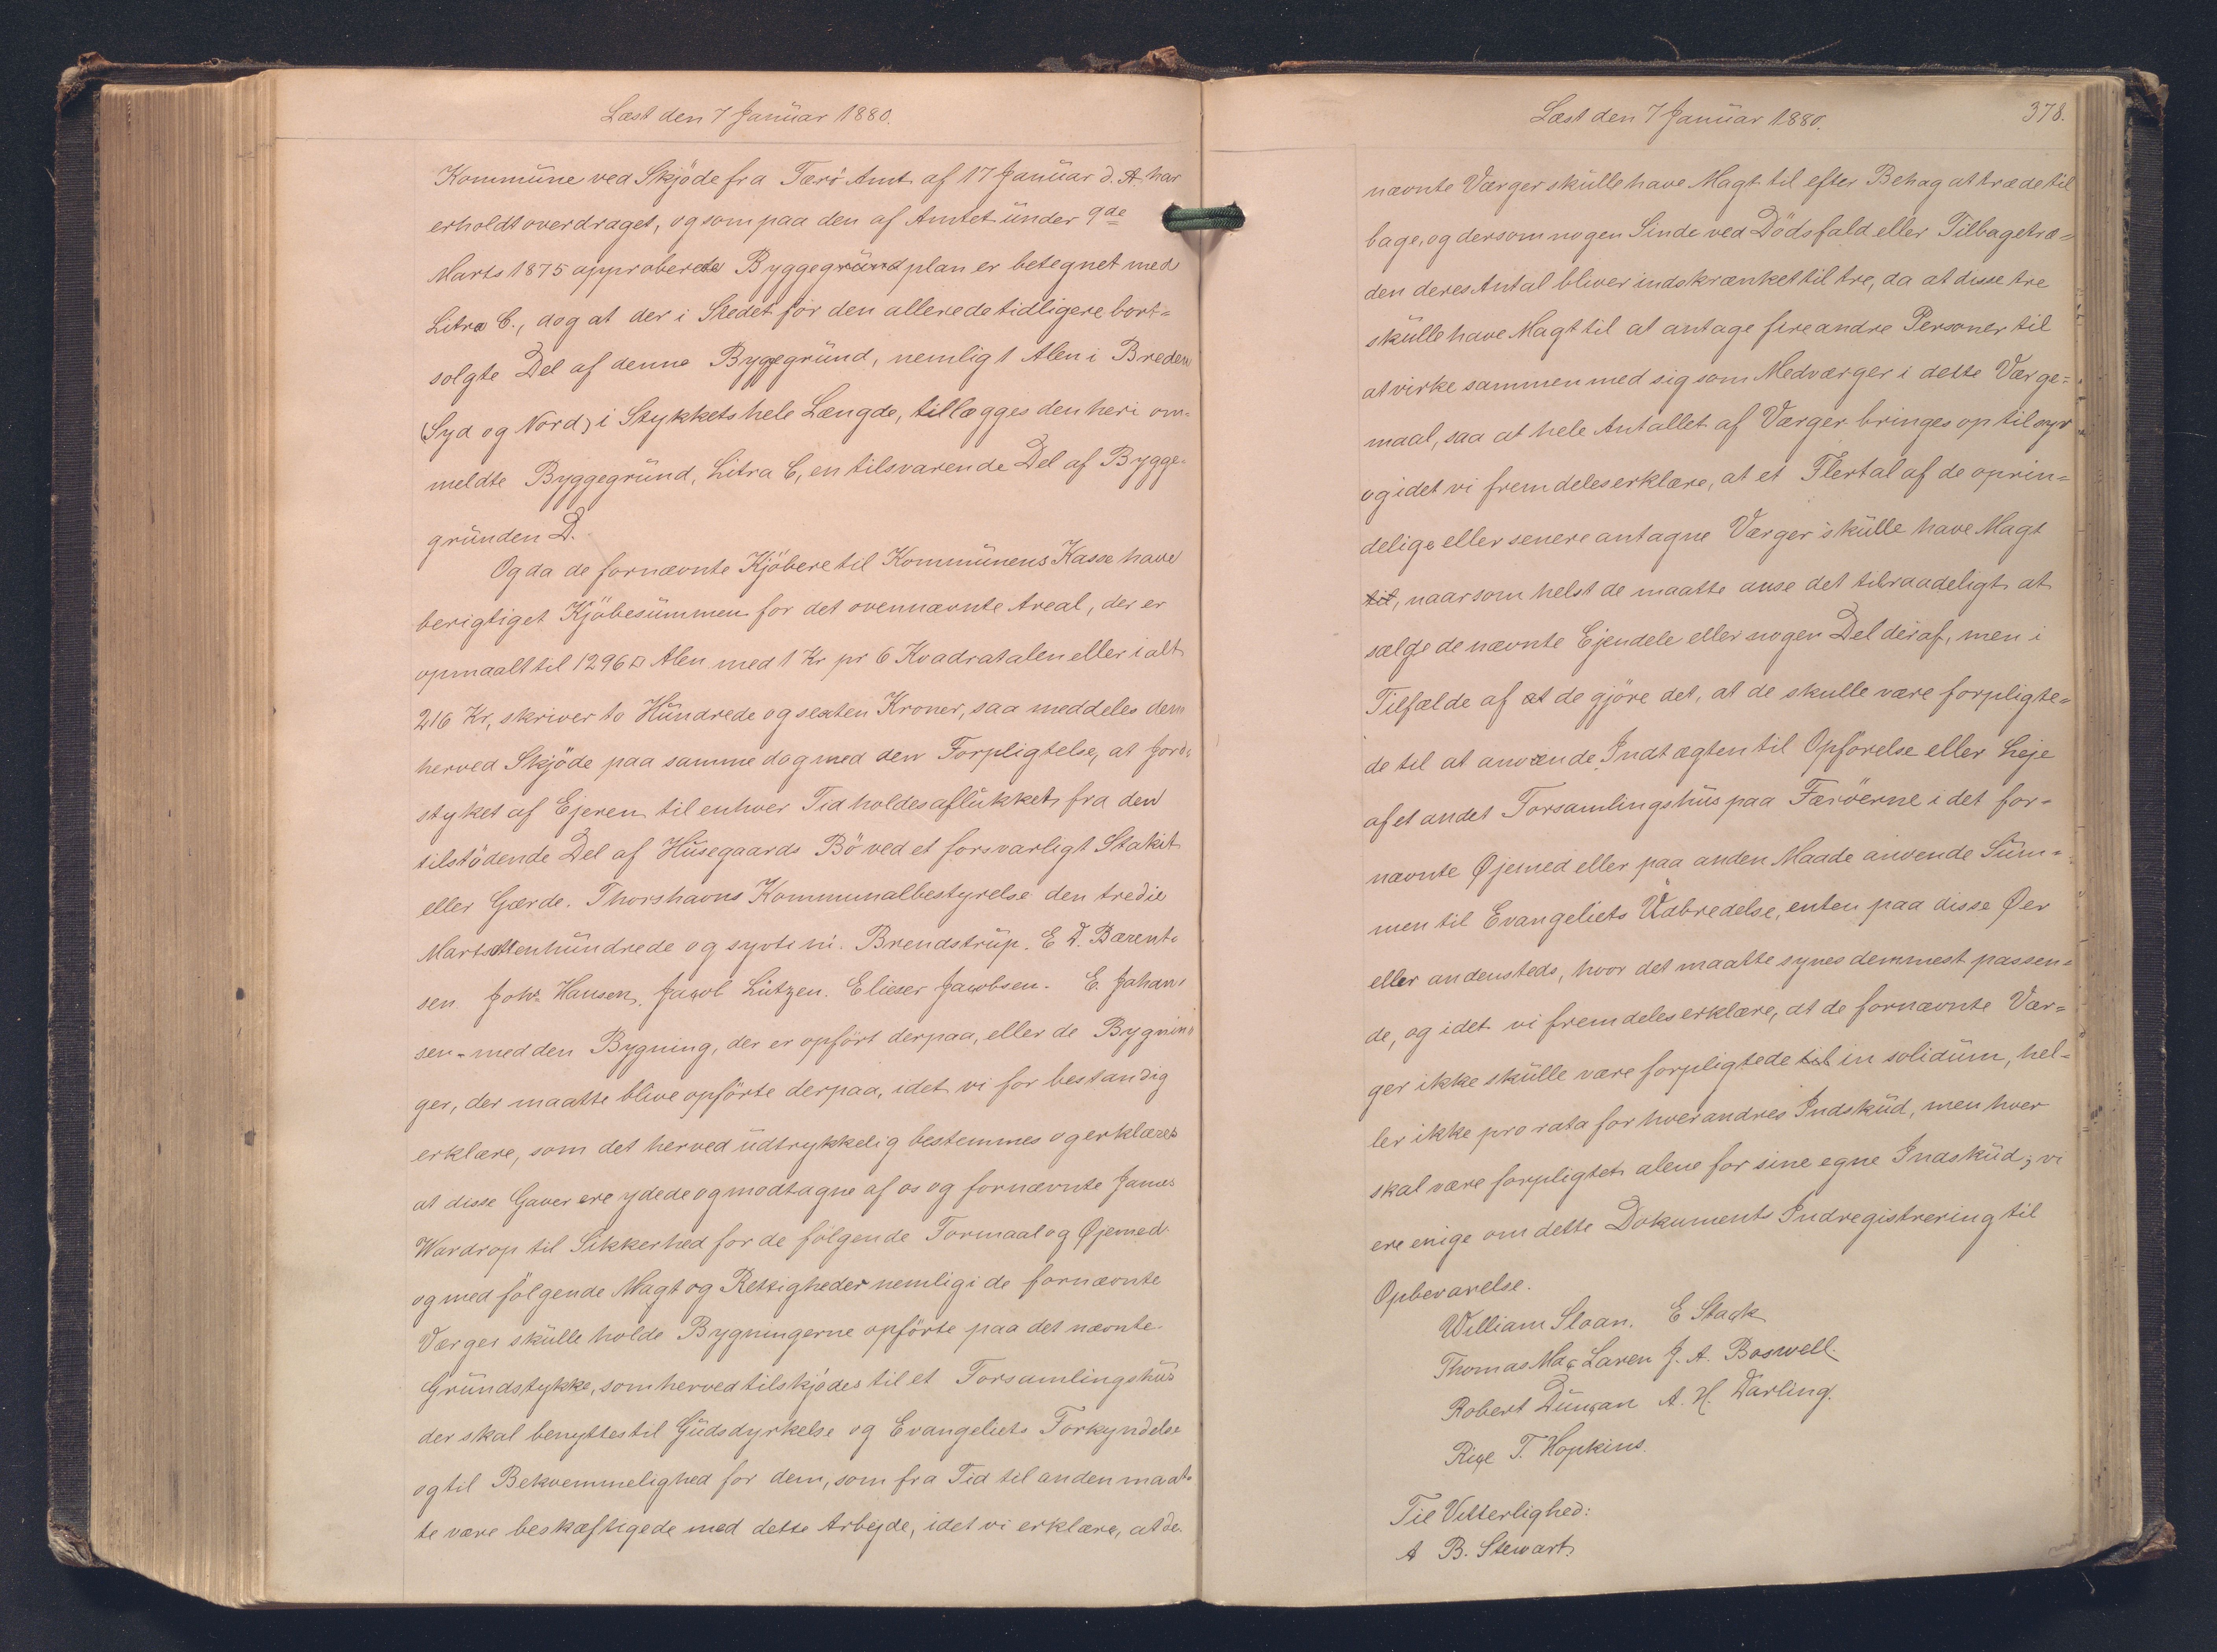 Læst den 7 Januar 1880.
Kommune ved Skjöde fra Færö Amt af 17 Januar d. A. har
erholdt overdraget, og som paa den af Amtet under 9de
Marts 1875 approberede Byggegrundplan er betegnet med
Litra C., dog at der i Stedet for den allerede tidligere bort=
solgte Del af denne Byggegrund, nemlig 1 Alen i Breden
(Syd og Nord) i Stykkets hele Længde, tillægges den heri om=
meldte Byggegrund, Litra C, en tilsvarende Del af Bygge=
grunden D.
Og da de fornævnte Kjöbere til Kommunens Kasse have
berigtiget Kjöbesummen for det ovennævnte Areal, der er
opmaalt til 1296 □ Alen med 1 Kr pr 6 Kvadratalen eller ialt
216 Kr, skriver to Hundrede og sexten Kroner, saa meddeles dem
herved Skjöde paa samme dog med den Forpligtelse, at Jord=
stykket af Ejeren til enhver Tid holdes aflukket fra den
tilstödende Del af Husegaards Bö ved et forsvarligt Stakit
eller Gærde. Thorshavns Kommunalbestyrelse den tredie
Marts attenhundrede og syvti ni. Brendstrup. E D. Bærent=
sen Johs. Hansen. Jacob Lützen. Elieser Jacobsen. E. Johan=
sen - med den Bygning, der er opfört derpaa, eller de Bygnin=
ger, der maatte blive opförte derpaa, idet vi for bestandig
erklære, som det herved udtrykkelig bestemmes og erklæres
at disse Gaver ere ydede og modtagne af os og fornævnte James
Wardrop til Sikkerhed for de fölgende Formaal og Øjemed
og med fölgende Magt og Rettigheder nemlig i de fornævnte
Værger skulle holde Bygningerne opförte paa det nævnte
Grundstykke, som herved tilskjödes til et Forsamlingshus
der skal benyttes til Gudsdyrkelse og Evangeliets Forkyndelse
og til Bekvemmelighed for dem, som fra Tid til anden maat=
te være beskæftigede med dette Arbejde, idet vi erklære, at de
Læst den 7 Januar 1880.
378.
nævnte Værger skulle have Magt til efter Behag at træde til
bage, og dersom nogen Sinde ved Dödsfald eller Tilbagetræ=
den deres Antal bliver indskrænket til tre, da at disse tre
skulle have Magt til at antage fire andre Personer til
at virke sammen med sig som Medværger i dette Værge=
maal, saa at hele Antallet af Værger bringes op til syv
og idet vi fremdeles erklære, at et Flertal af de oprin=
delige eller senere antagne Værger skulle have Magt
til, naarsomhelst de maatte anse det tilraadeligt at
sælge de nævnte Ejendele eller nogen Del deraf, men i
Tilfælde af at de gjöre det, at de skulle være forpligte=
de til at anvende Indtægten til Opförelse eller Leje
af et andet Forsamlingshus paa Færöerne i det for=
nævnte Øjemed eller paa anden Maade anvende Sum=
men til Evangeliets Udbredelse, enten paa disse Øer
eller andensteds, hvor det maatte synes dem mest passen=
de, og idet vi fremdeles erklære, at de fornævnte Vær=
ger ikke skulle være forpligtede til in solidum, hel=
ler ikke pro rata for hverandres Indskud, men hver
skal være forpligtet alene for sine egne Indskud; vi
ere enige om dette Dokuments Indregistrering til
Opbevarelse.
William Sloan. E Stack
Thomas Mac Laren J. A. Boswell.
Robert Duncan A. H. Darling.
Rice T. Hopkins.
Til Vitterlighed:
A B. Stewart.